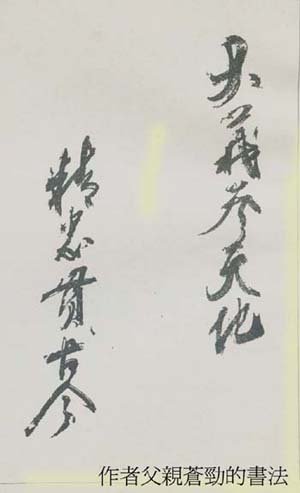 大義參天地
精忠貫古今
作者父親蒼勁的書法